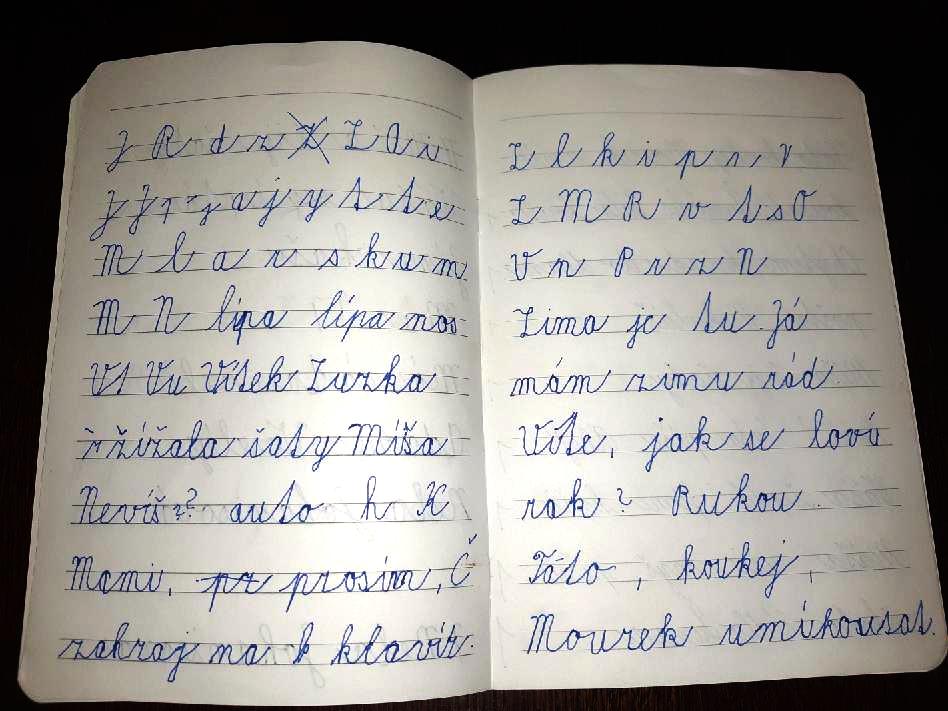 J R d z Z Z A v
J J j j a j y t t e
M l a r s k u m
M N lípa lípa nos
Ví Vu Vítek Zuzka
ř žížala šaty Míša
Nevíš ? ? auto h K
Mami, pr prosím, Č
zahraj na k klavír.
Z l k i p r r
Z M R v t s O
V n P v z N
Zima je tu. Já
mám zimu rád.
Víte, jak se loví
rak ? Rukou.
Táto, koukej,
Mourek umí kousat.